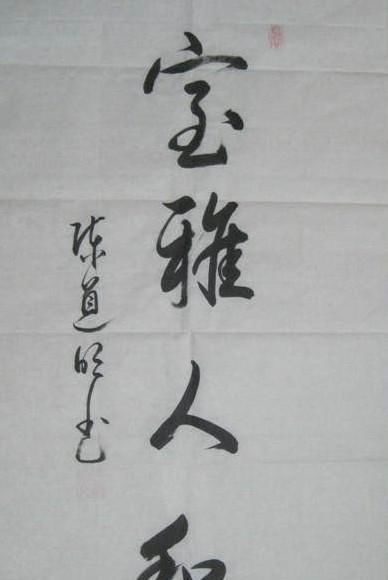 室雅人和
陈道明书